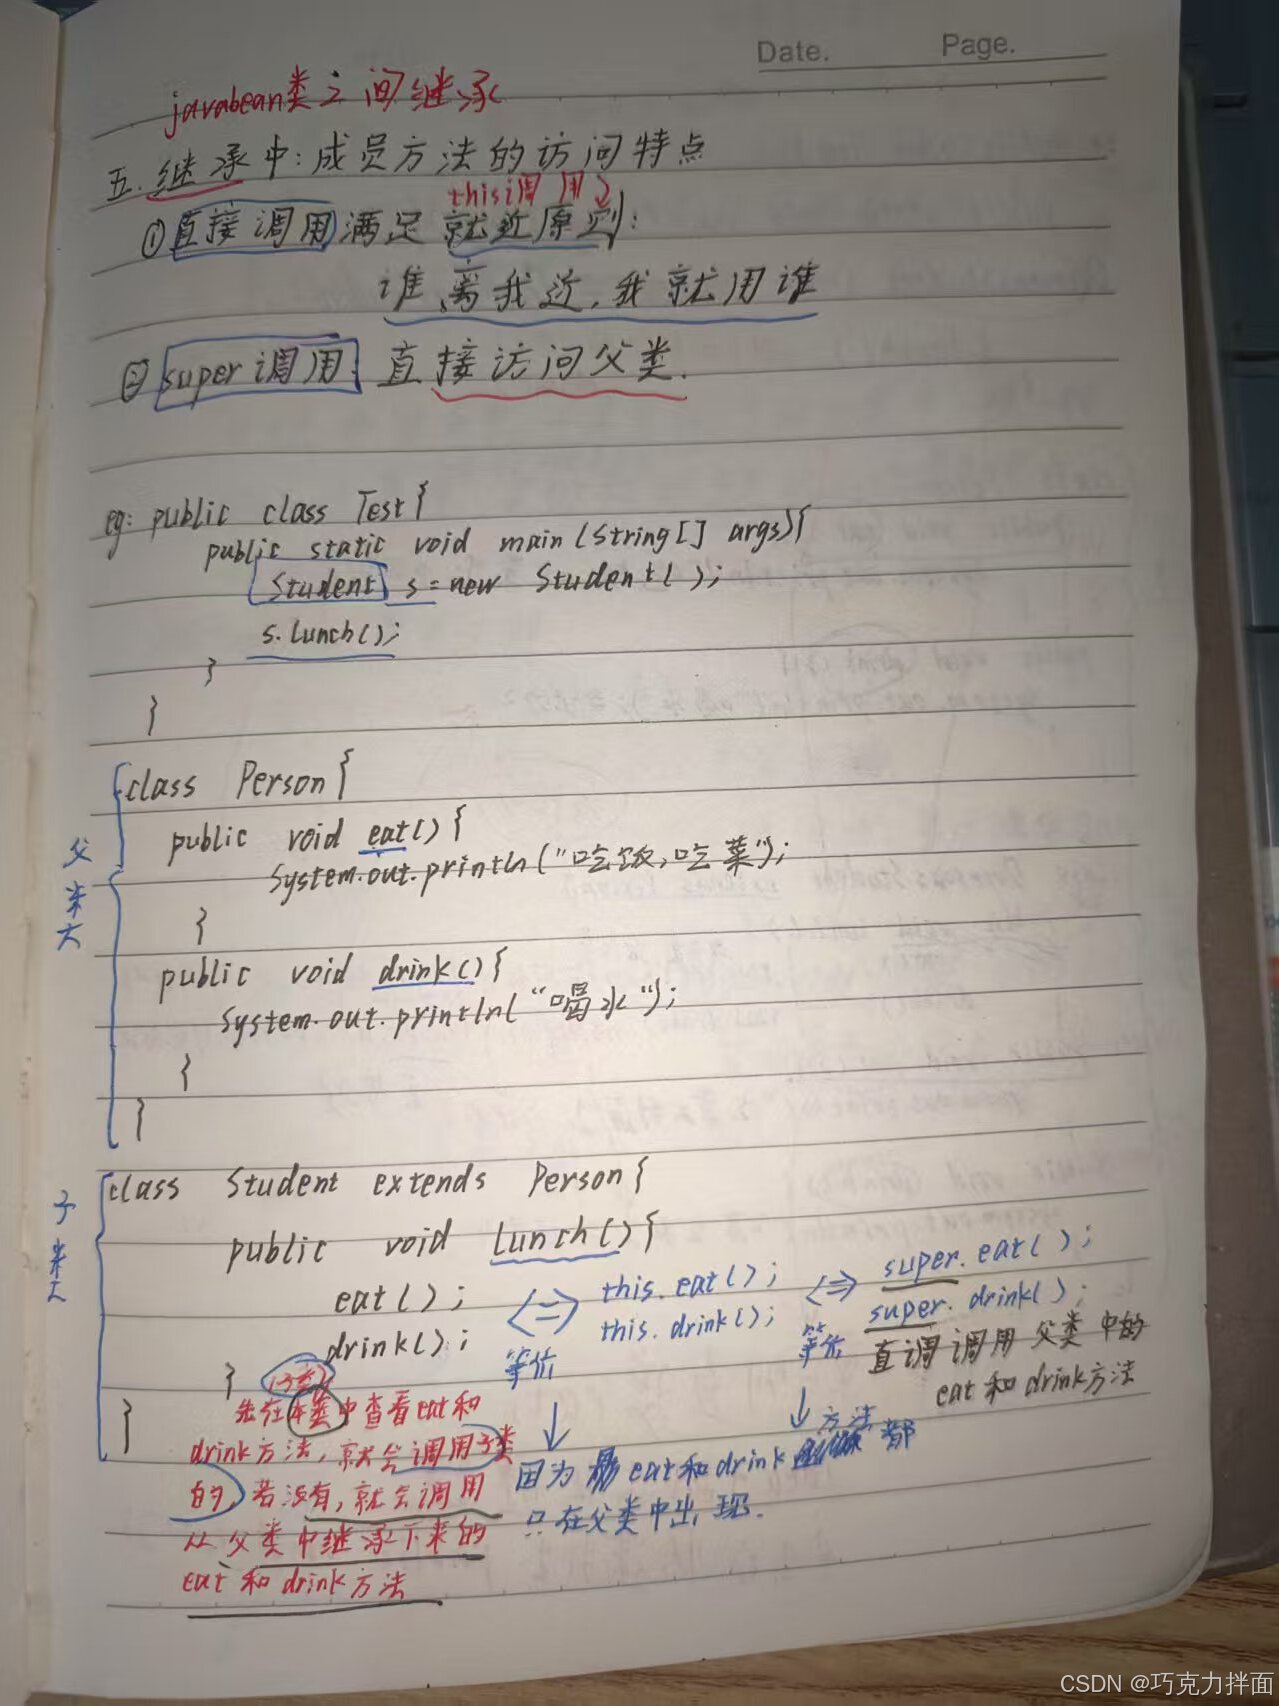 Date. Page.
javabean类之间继承
五.继承中:成员方法的访问特点
this调用
①直接调用满足就近原则:
谁离我近,我就用谁
②super调用:直接访问父类.
eg: public class Test{
public static void main(String[] args){
Student s = new Student();
s.lunch();
}
}
class Person{
public void eat(){
System.out.println("吃饭,吃菜");
}
父类
public void drink(){
System.out.println("喝水");
}
}
class Student extends Person{
子类
public void lunch(){
eat(); <=> this.eat(); <=> super.eat();
drink(); 等价 this.drink(); 等价 super.drink();
} 直调调用父类中的
eat和drink方法
}
(子类)
先在本类中查看eat和
drink方法,就会调用子类
的,若没有,就会调用
从父类中继承下来的
eat和drink方法
因为 eat和drink方法都
只在父类中出现.
CSDN @巧克力拌面